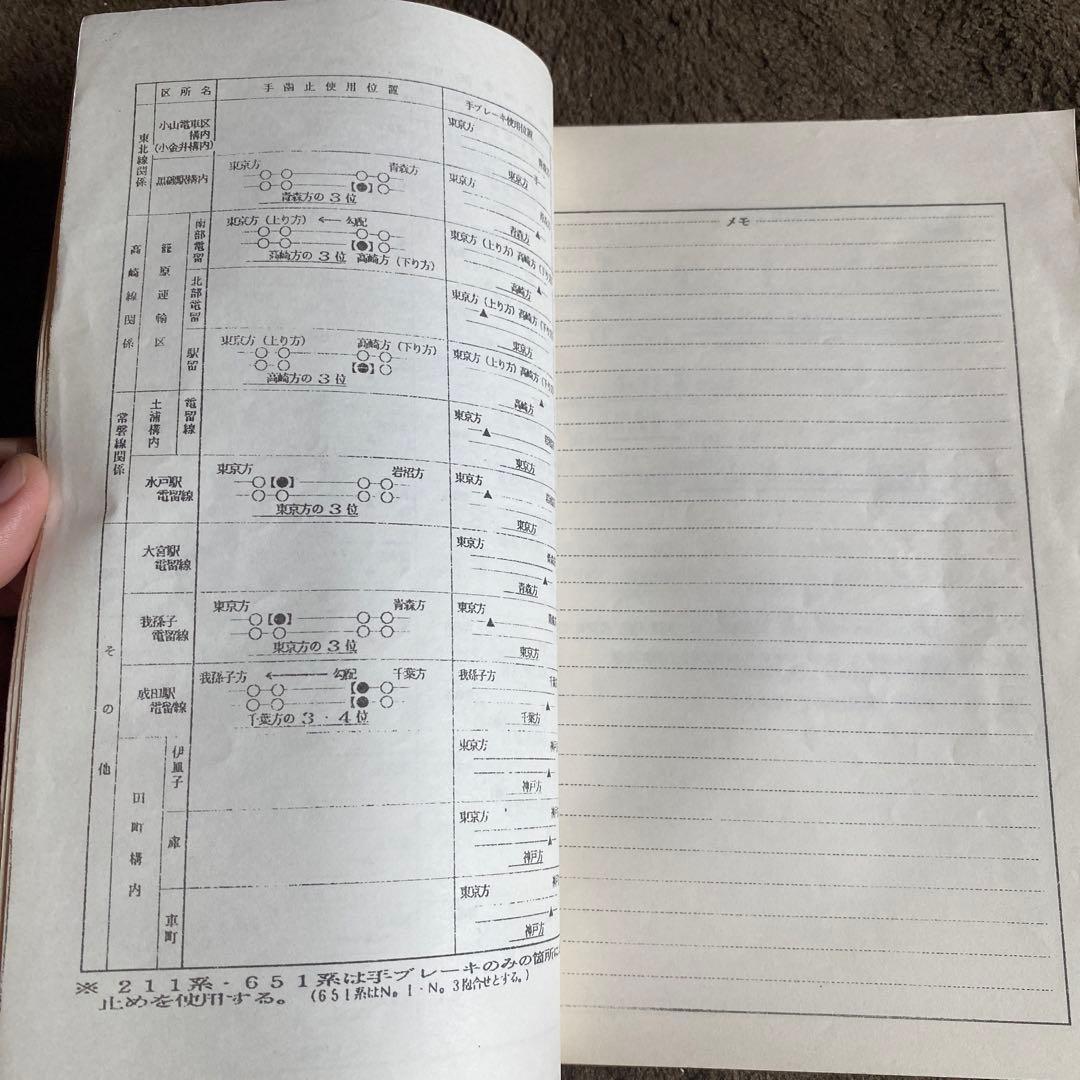 区所名
手歯止使用位置
手ブレーキ使用位置
東北線関係
小山電車区
構内
(小金井構内)
東京方
東京方
黒磯駅構内
東京方
青森方
【●】
青森方の3位
東京方
青森方
高崎線関係
籠原運輸区
南部電留
東京方(上り方) ← 勾配
【●】
高崎方の3位 高崎方(下り方)
東京方(上り方)高崎方(下
高崎方
北部電留
東京方(上り方)高崎方(下
▲
東京方
駅留
東京方(上り方)
高崎方(下り方)
高崎方の3位
東京方(上り方)高崎方(下
▲
高崎方
常磐線関係
土浦構内
電留線
東京方
▲
東京方
水戸駅
電留線
東京方
岩沼方
【●】
東京方の3位
東京方
▲
東京方
その他
大宮駅
電留線
東京方
▲
青森方
我孫子
電留線
東京方
青森方
【●】
東京方の3位
東京方
▲
東京方
成田駅
電留線
我孫子方 ← 勾配 千葉方
千葉方の3・4位
我孫子方
▲
千葉方
田町構内
伊皿子
東京方
▲
神戸方
東京方
▲
神戸方
車町
東京方
▲
神戸方
※ 211系・651系は手ブレーキのみの箇所に
止めを使用する。 (651系はNo.1・No.3抱合せとする。)
メモ